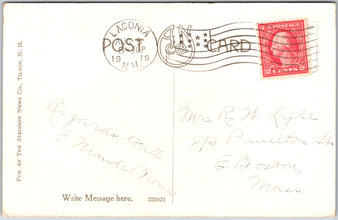 LACONIA
SEP
1918
N.H.
POST CARD
U.S. POSTAGE
2 CENTS 2
PUB. BY THE ATKINSON NEWS CO., TILTON, N. H.
Regards to all
E. Maude Brown
Mrs R. W. Lyle
Princeton St
E. Boston,
Mass.
Write Message here.
222421